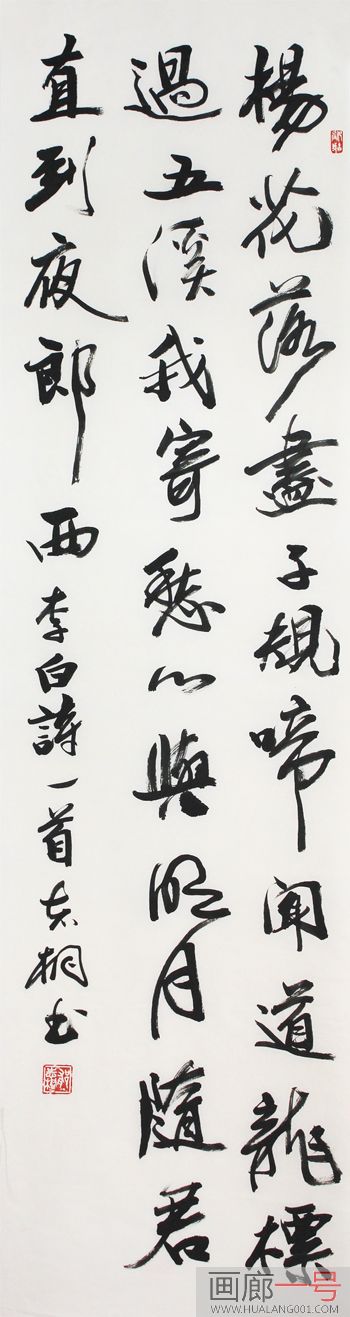 楊花落盡子規啼聞道龍標
過五溪我寄愁心與明月隨君
直到夜郎西李白詩一首志桐书
画廊一号
WWW.HUALANG001.COM